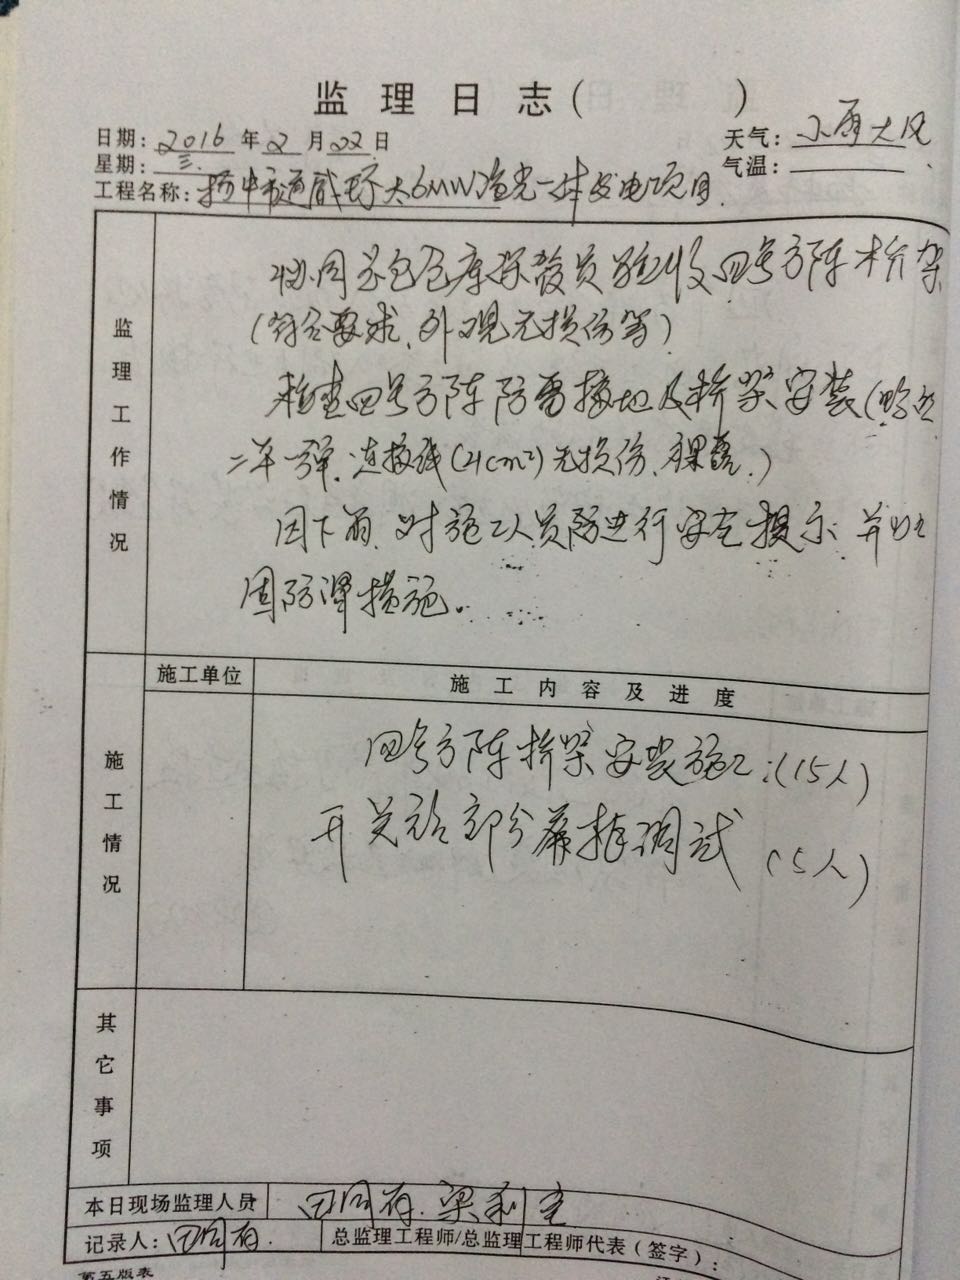 监理日志( )
日期: 2016 年 2 月 22 日
天气: 小雨大风
星期: 三.
气温:
工程名称: 扬中市通威 大6MW渔光一体发电项目.
监理工作情况
协同 仓库 员验收四号方阵桥架
(符合要求、外观无损伤等)
检查四号方阵防雷接地及桥架安装(
二平一弹、连接线(4cm²)无损伤、裸露.)
因下雨、对施工人员 进行安全提示、并
固防 措施。
施工单位
施工内容及进度
施工情况
四号方阵桥架安装施工:(15人)
开关站部分屏柜调试 (5人)
其它事项
本日现场监理人员 田同有.梁利
记录人: 田同有.
总监理工程师/总监理工程师代表(签字):
第五版表